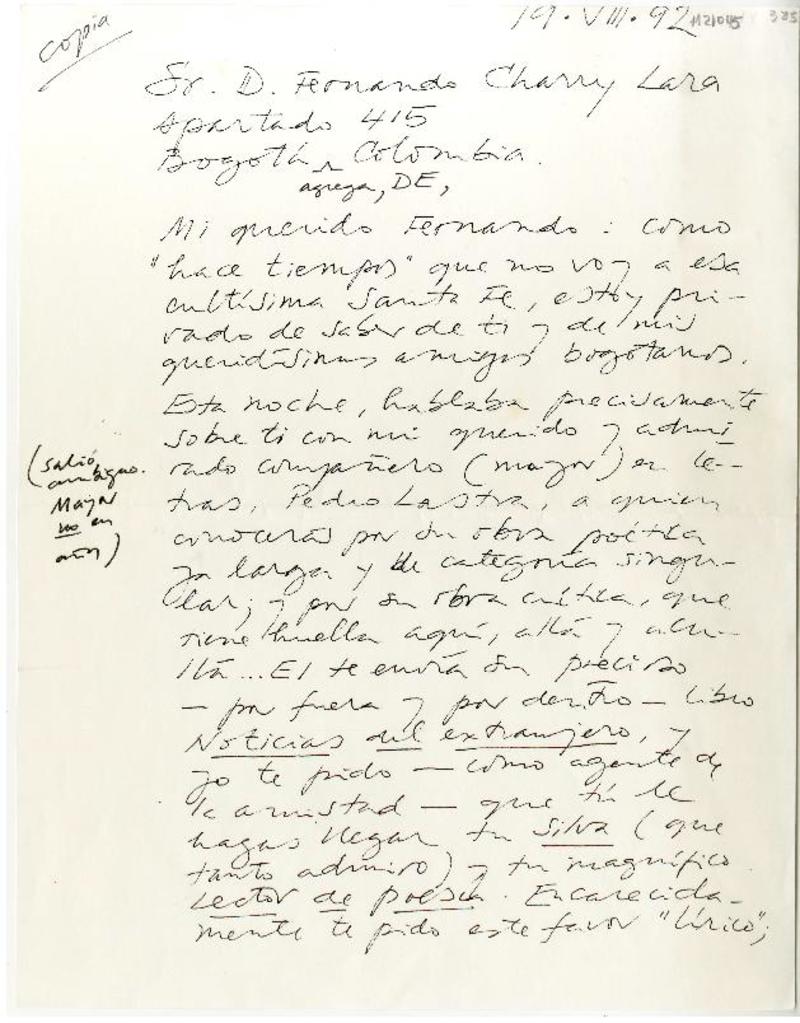 copia
19·VIII·92
1121045 385
Sr. D. Fernando Charry Lara
Apartado 415
Bogotá, Colombia.
agrega, DE,
Mi querido Fernando: como
"hace tiempos" que no voy a esa
cultísima Santa Fe, estoy pri-
vado de saber de ti y de mis
queridísimos amigos bogotanos.
Esta noche, hablaba precisamente
sobre ti con mi querido y admi-
rado compañero (mayor) en le-
tras, Pedro Lastra, a quien
conocerás por su obra poética
ya larga y de categoría singu-
lar; y por su obra crítica, que
tiene huella aquí, allá y acu-
llá... El te envía su precioso
— por fuera y por dentro — libro
Noticias del extranjero, y
yo te pido — como agente de
la amistad — que tú le
hagas llegar tu Silva (que
tanto admiro) y tu magnífico
Lector de poesía. Encarecida-
mente te pido este favor "lírico";
(salió
ambiguo.
Mayor
no en
años)